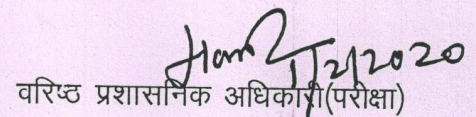 1/2/2020
वरिष्ठ प्रशासनिक अधिकारी(परीक्षा)